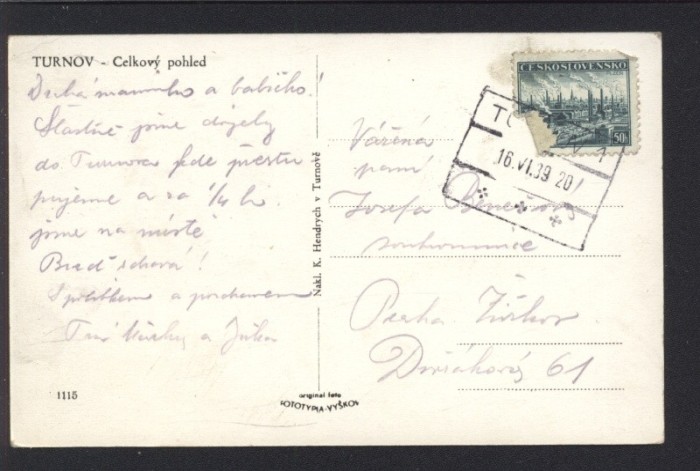 TURNOV - Celkový pohled
Drahá maminko a babičko!
Šťastně jsme dojely
do Turnova kde přestu
pujeme a za 1/4 h
jsme na místě
Buď zdravá!
S polibkem a pozdravem
a Jirka
1115
Nakl. K. Hendrych v Turnově
original foto
FOTOTYPIA-VYŠKOV
ČESKOSLOVENSKO
50h
16.VI.39 20
Vážená
paní
Josefa Benešová
soukromnice
Praha Žižkov
61